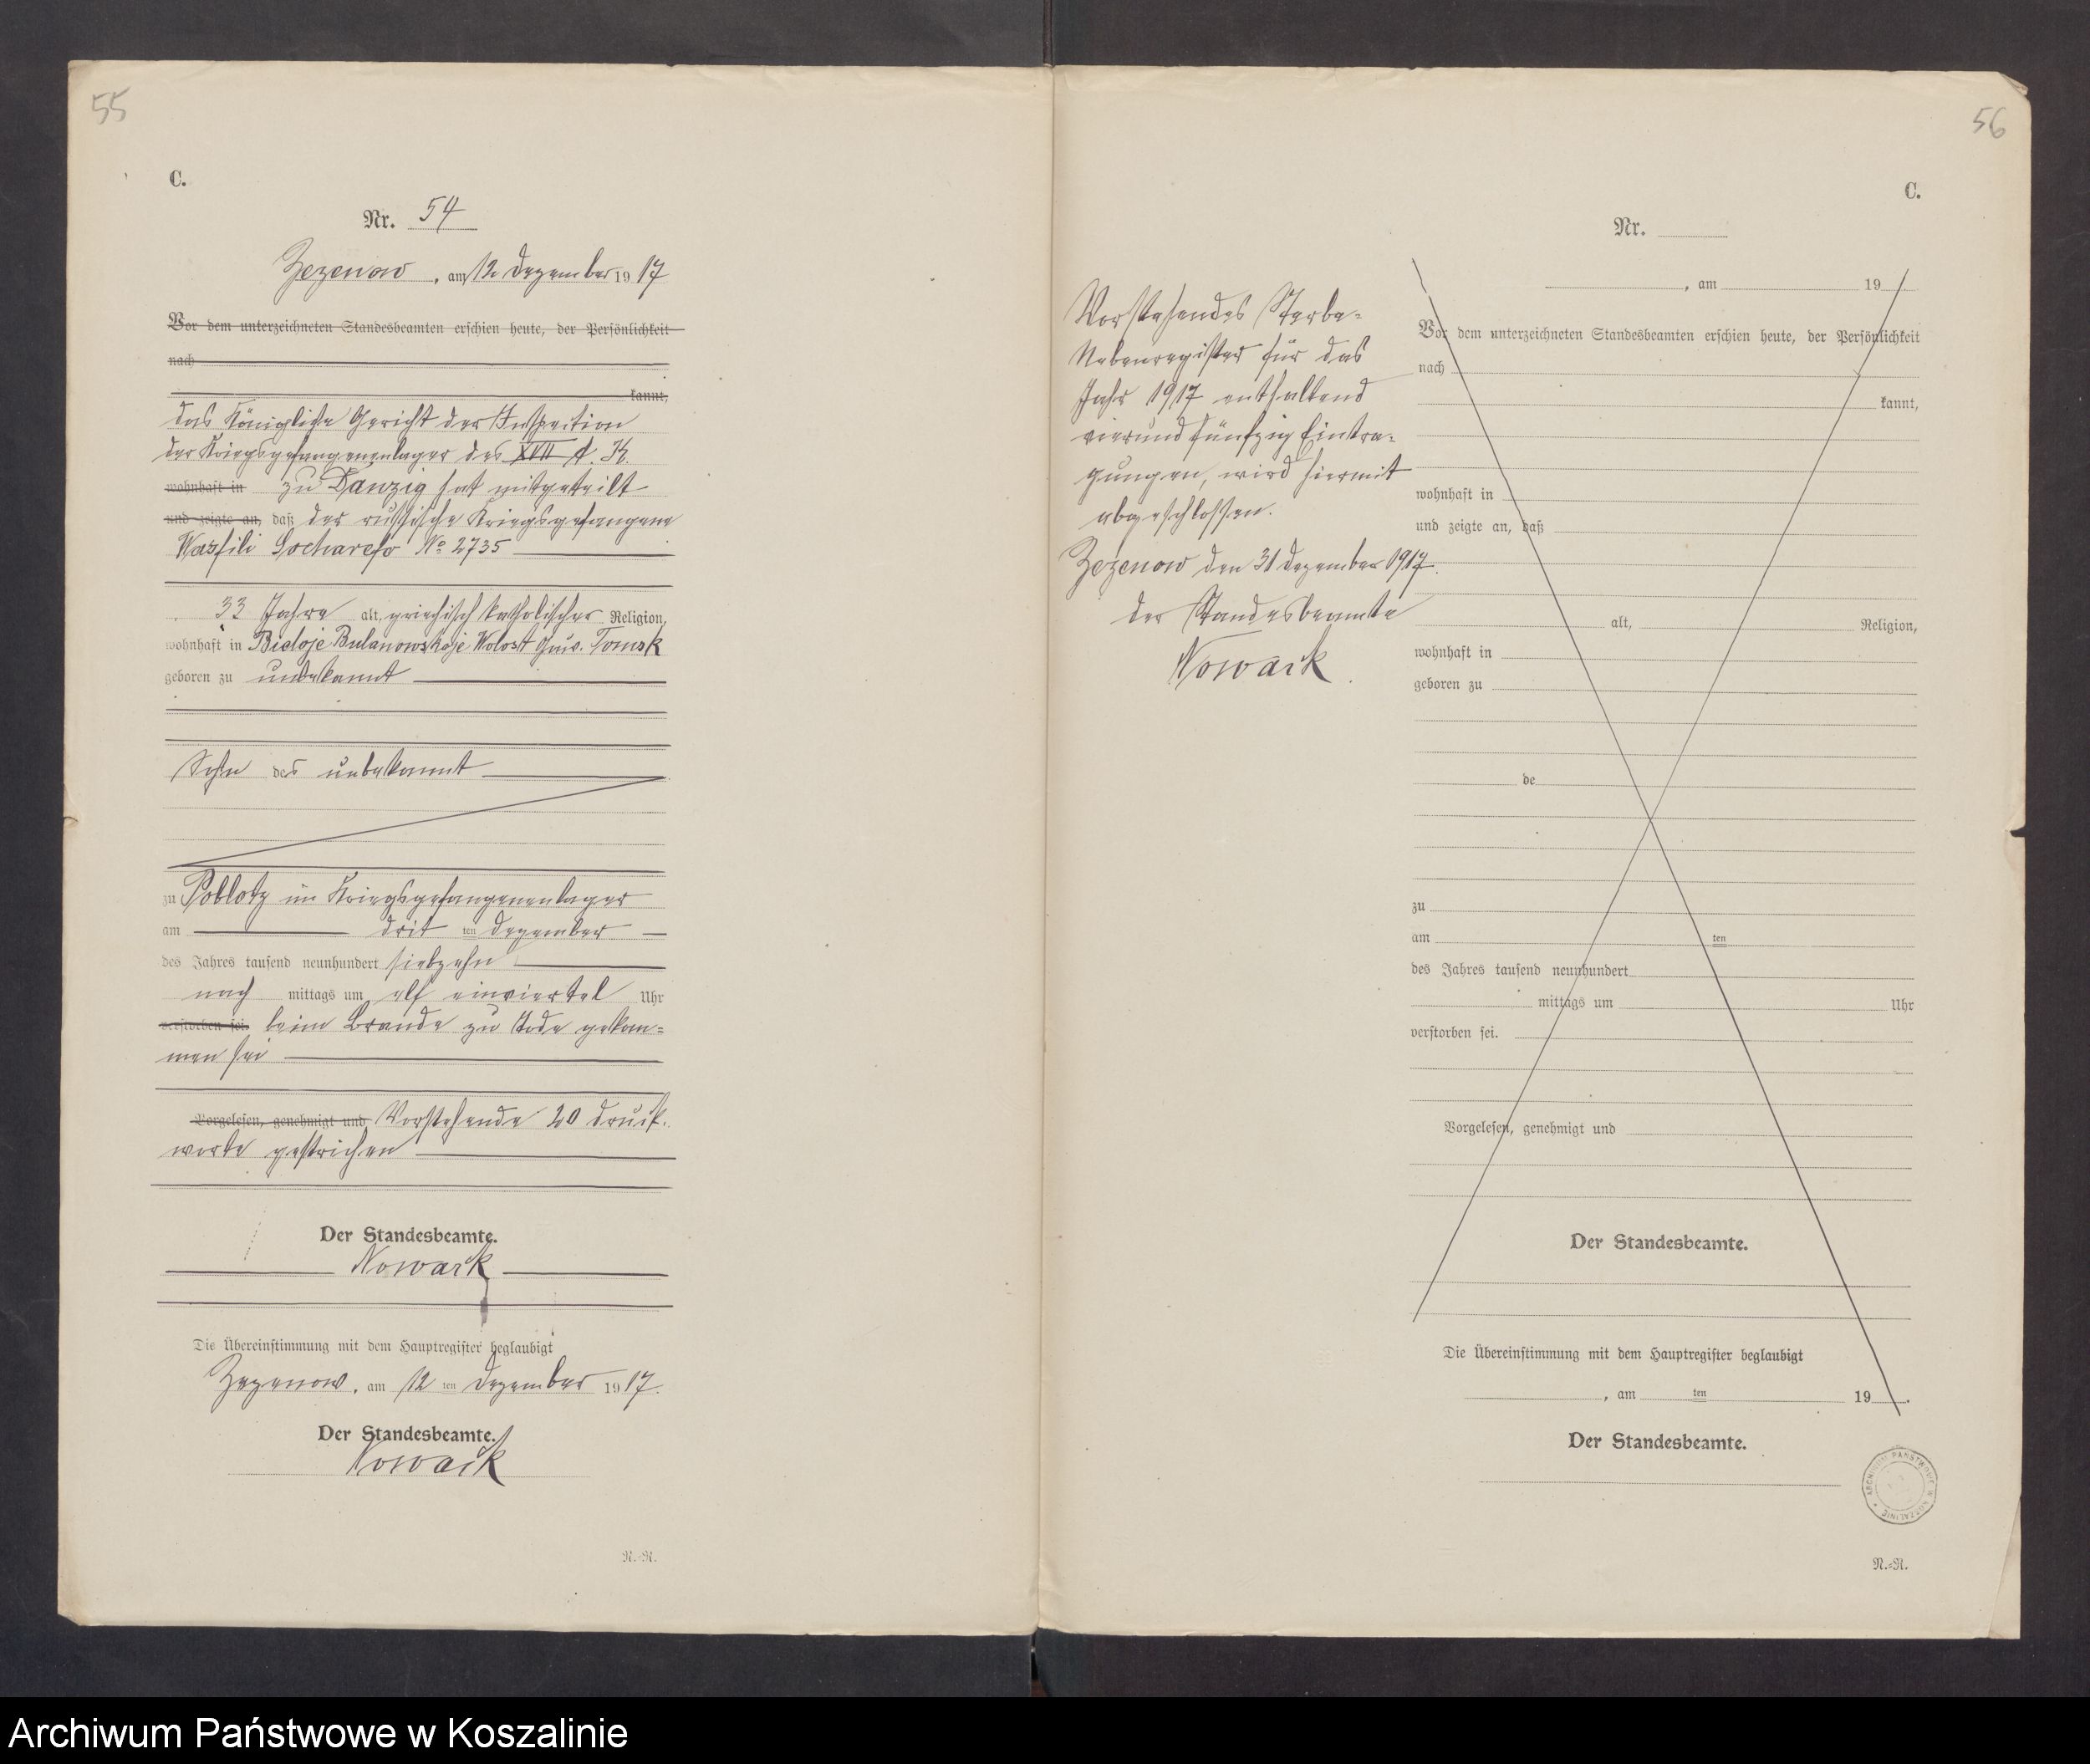 55
C.
Nr. 54
Zezenow, am 12 Dezember 1917
Vor dem unterzeichneten Standesbeamten erschien heute, der Persönlichkeit
nach
kannt,
das Königliche Gericht der Inspektion
der Kriegsgefangenenlager des XVII A. K.
wohnhaft in zu Danzig hat mitgeteilt
und zeigte an, daß der russische Kriegsgefangene
Wassili Socharefo No 2735
33 Jahre alt, griechisch katholischer Religion,
wohnhaft in Bieloje Bulanowskoje Wolost Guv. Tomsk
geboren zu unbekannt
Sohn des unbekannt
zu Poblotz im Kriegsgefangenenlager
am drit ten Dezember
des Jahres tausend neunhundert siebzehn
nach mittags um elf einviertel Uhr
verstorben sei. beim Brande zu Tode gekom=
men sei
Vorgelesen, genehmigt und Vorstehende 20 Druck.
worte gestrichen
Der Standesbeamte.
Nowack
Die Übereinstimmung mit dem Hauptregister beglaubigt
Zezenow, am 12 ten Dezember 1917.
Der Standesbeamte.
Nowack
N.=N.
56
C.
Vorstehendes Sterbe=
Nebenregister für das
Jahr 1917 enthaltend
vierund fünfzig Eintra=
gungen, wird hiermit
abgeschlossen.
Zezenow den 31 Dezember 1917.
der Standesbeamte
Nowack
Nr.
, am 19
Vor dem unterzeichneten Standesbeamten erschien heute, der Persönlichkeit
nach
kannt,
wohnhaft in
und zeigte an, daß
alt, Religion,
wohnhaft in
geboren zu
de
zu
am ten
des Jahres tausend neunhundert
mittags um Uhr
verstorben sei.
Vorgelesen, genehmigt und
Der Standesbeamte.
Die Übereinstimmung mit dem Hauptregister beglaubigt
, am ten 19 .
Der Standesbeamte.
ARCHIWUM PAŃSTWOWE W KOSZALINIE
N.=N.
Archiwum Państwowe w Koszalinie